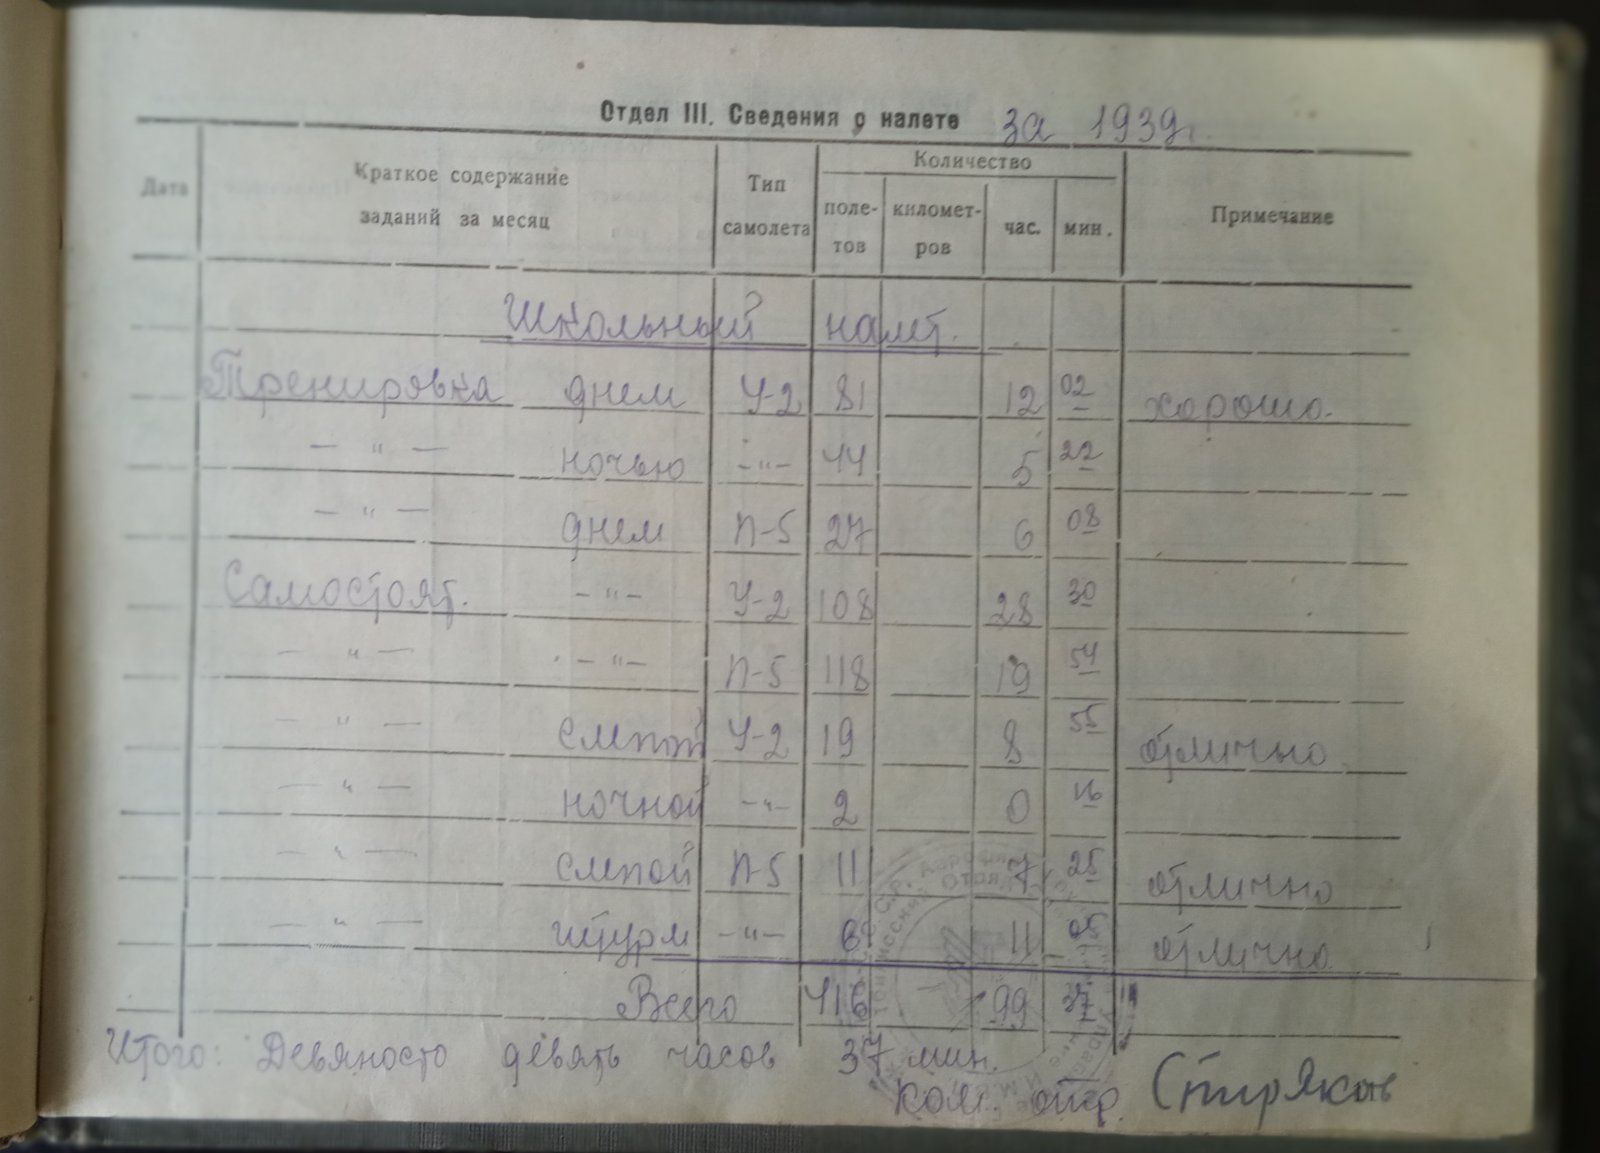 Отдел III. Сведения о налете за 1939г.
Дата
Краткое содержание
заданий за месяц
Тип
самолета
Количество
поле-
тов
километ-
ров
час.
мин.
Примечание
Школьный налёт.
Тренировка днем У-2 81 12 02 хорошо.
— " — ночью — " — 44 5 22
— " — днем П-5 27 6 08
Самостоят. — " — У-2 108 28 30
— " — — " — П-5 118 19 54
— " — слепой У-2 19 8 55 отлично
— " — ночной — " — 2 0 16
— " — слепой П-5 11 7 25 отлично
— " — штурм — " — 6 11 05 отлично
Всего 416 99 37
Итого: Девяносто девять часов 37 мин.
Ком. отр.